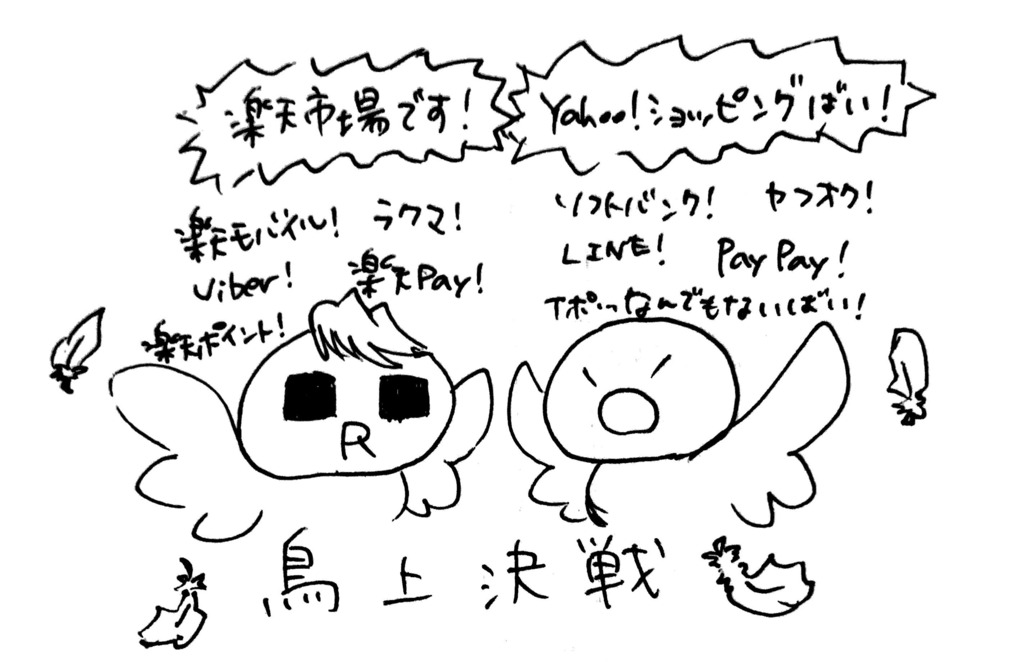 楽天市場です!
Yahoo!ショッピングばい!
楽天モバイル!
ラクマ!
Viber!
楽天Pay!
楽天ポイント!
ソフトバンク!
ヤフオク!
LINE!
PayPay!
Tポっなんでもないばい!
R
鳥上決戦